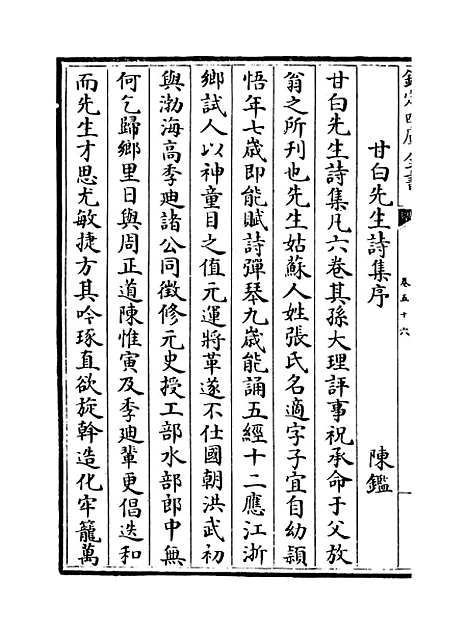 欽定四庫全書
卷五十六
甘白先生詩集序
陳鑑
甘白先生詩集凡六卷其孫大理評事祝承命于父放
翁之所刊也先生姑蘇人姓張氏名適字子宜自幼穎
悟年七歲即能賦詩彈琴九歲能誦五經十二應江浙
鄉試人以神童目之值元運將革遂不仕國朝洪武初
與渤海高季廸諸公同徵修元史授工部水部郎中無
何乞歸鄉里日與周正道陳惟寅及季廸輩更倡迭和
而先生才思尤敏捷方其吟琢直欲旋斡造化牢籠萬